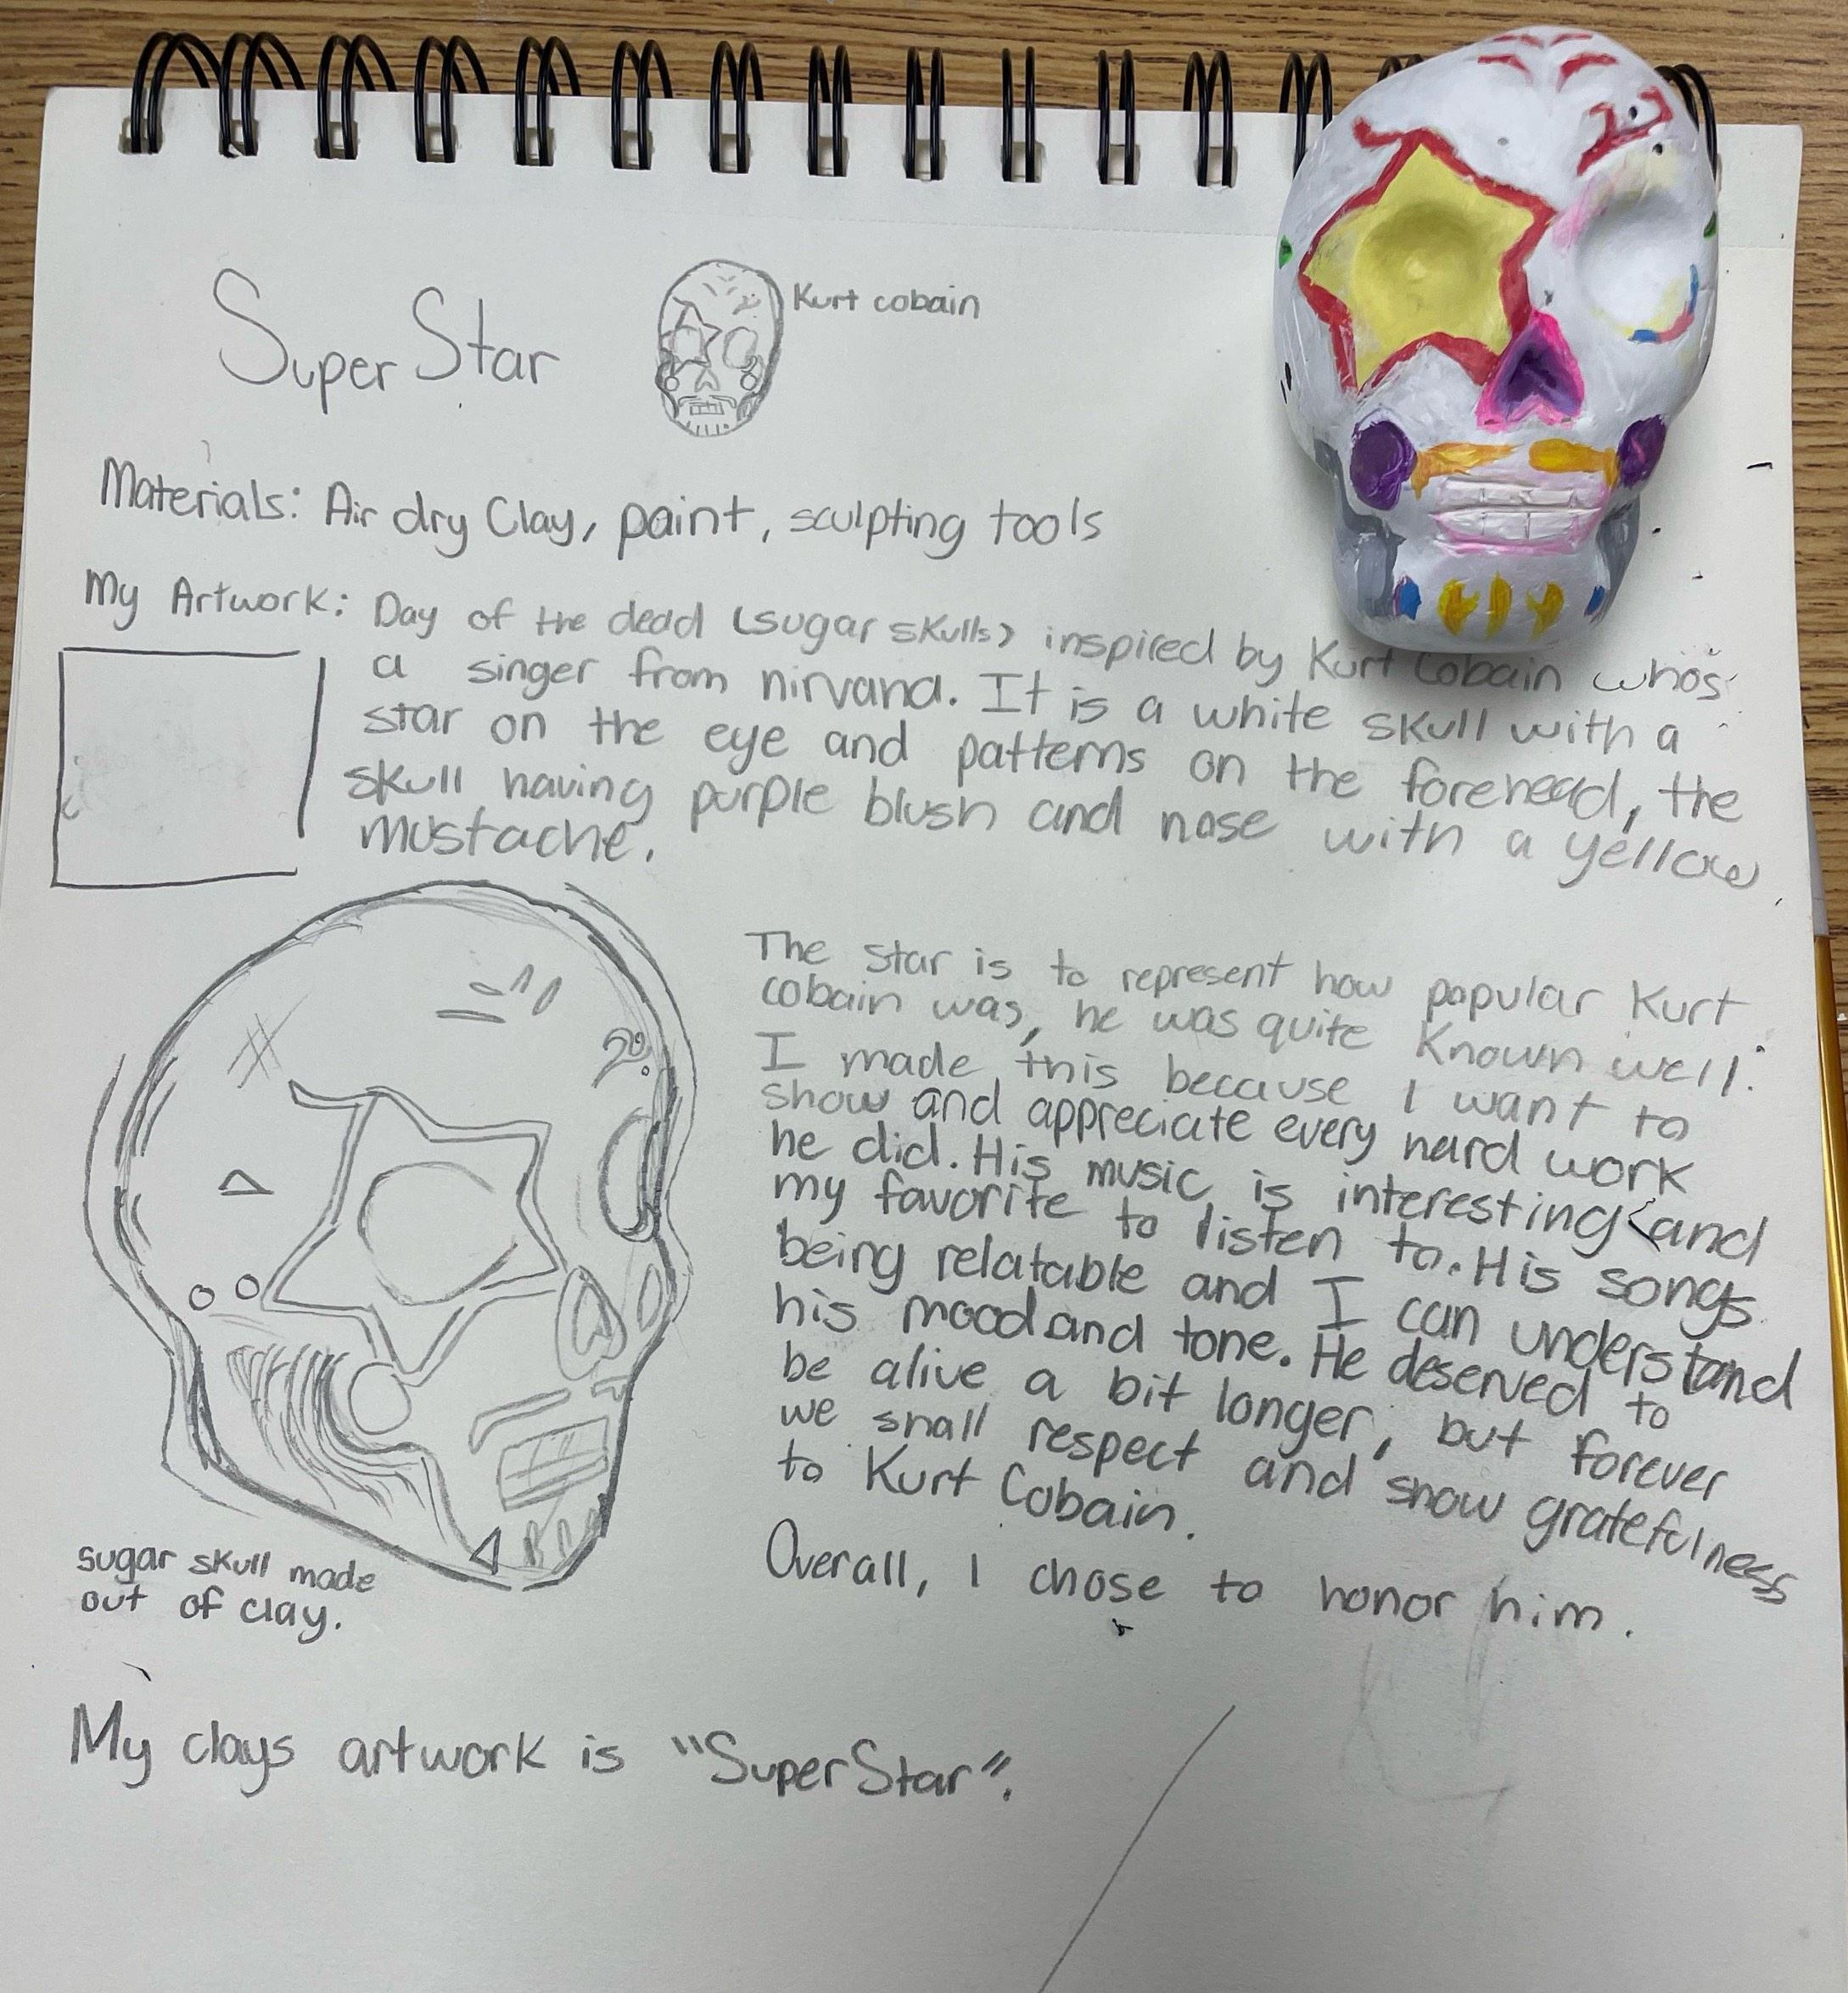 Super Star
Kurt cobain
Materials: Air dry Clay, paint, sculpting tools
My Artwork: Day of the dead (sugar skulls) inspired by Kurt Cobain whos
a singer from nirvana. It is a white skull with a
star on the eye and patterns on the forehead, the
skull having purple blush and nose with a yellow
mustache.
The star is to represent how popular Kurt
cobain was, he was quite known well.
I made this because I want to
show and appreciate every hard work
he did. His music is interesting and
my favorite to listen to. His songs
being relatable and I can understand
his mood and tone. He deserved to
be alive a bit longer, but forever
we shall respect and show gratefulness
to Kurt Cobain.
Overall, I chose to honor him.
sugar skull made
out of clay.
My clays artwork is "SuperStar".